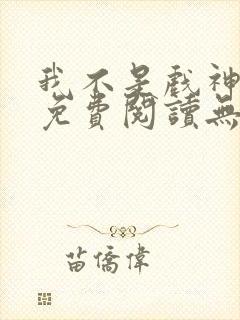 我不是戲神
免費閱讀無
苗僑偉